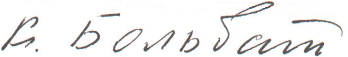 В. Больбат